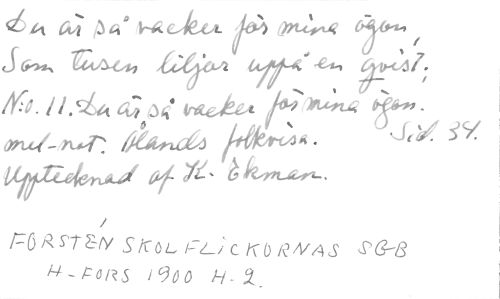 Du är så vacker för mina ögon,
Som tusen liljor uppå en gvist,
N:o. 11. Du är så vacker för mina ögon.
mel-not. Ålands folkvisa. Sid. 34.
Upptecknad af K. Ekman.
FORSTÉN SKOLFLICKORNAS SGB
H-FORS 1900 H-2.